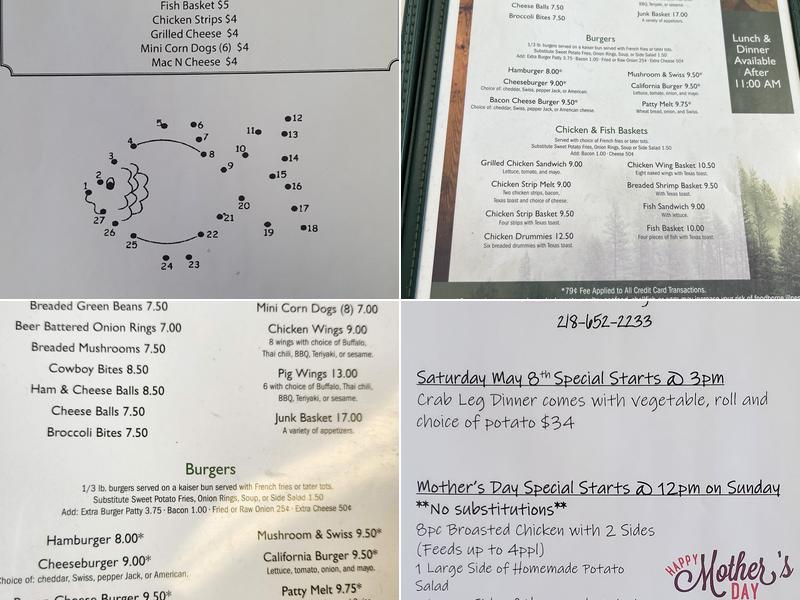 Fish Basket $5
Chicken Strips $4
Grilled Cheese $4
Mini Corn Dogs (6) $4
Mac N Cheese $4
1
2
3
4
5
6
7
8
9
10
11
12
13
14
15
16
17
18
19
20
21
22
23
24
25
26
27
Cheese Balls 7.50
Broccoli Bites 7.50
BBQ, Teriyaki, or sesame.
Junk Basket 17.00
A variety of appetizers.
Burgers
1/3 lb. burgers served on a kaiser bun served with French fries or tater tots.
Substitute Sweet Potato Fries, Onion Rings, Soup, or Side Salad 1.50
Add: Extra Burger Patty 3.75 · Bacon 1.00 · Fried or Raw Onion 25¢ · Extra Cheese 50¢
Hamburger 8.00*
Cheeseburger 9.00*
Choice of: cheddar, Swiss, pepper Jack, or American.
Bacon Cheese Burger 9.50*
Choice of: cheddar, Swiss, pepper Jack, or American cheese.
Mushroom & Swiss 9.50*
California Burger 9.50*
Lettuce, tomato, onion, and mayo.
Patty Melt 9.75*
Wheat bread, onion, and Swiss.
Chicken & Fish Baskets
Served with choice of French fries or tater tots.
Substitute Sweet Potato Fries, Onion Rings, Soup, or Side Salad 1.50
Add: Bacon 1.00 · Cheese 50¢
Grilled Chicken Sandwich 9.00
Lettuce, tomato, and mayo.
Chicken Strip Melt 9.00
Two chicken strips, bacon,
Texas toast and choice of cheese.
Chicken Strip Basket 9.50
Four strips with Texas toast.
Chicken Drummies 12.50
Six breaded drummies with Texas toast.
Chicken Wing Basket 10.50
Eight naked wings with Texas toast.
Breaded Shrimp Basket 9.50
With Texas toast.
Fish Sandwich 9.00
With lettuce.
Fish Basket 10.00
Four pieces of fish with Texas toast.
Lunch &
Dinner
Available
After
11:00 AM
*79¢ Fee Applied to All Credit Card Transactions.
Breaded Green Beans 7.50
Beer Battered Onion Rings 7.00
Breaded Mushrooms 7.50
Cowboy Bites 8.50
Ham & Cheese Balls 8.50
Cheese Balls 7.50
Broccoli Bites 7.50
Mini Corn Dogs (8) 7.00
Chicken Wings 9.00
8 wings with choice of Buffalo,
Thai chili, BBQ, Teriyaki, or sesame.
Pig Wings 13.00
6 with choice of Buffalo, Thai chili,
BBQ, Teriyaki, or sesame.
Junk Basket 17.00
A variety of appetizers.
Burgers
1/3 lb. burgers served on a kaiser bun served with French fries or tater tots.
Substitute Sweet Potato Fries, Onion Rings, Soup, or Side Salad 1.50
Add: Extra Burger Patty 3.75 · Bacon 1.00 · Fried or Raw Onion 25¢ · Extra Cheese 50¢
Hamburger 8.00*
Cheeseburger 9.00*
Choice of: cheddar, Swiss, pepper Jack, or American.
Cheese Burger 9.50*
Mushroom & Swiss 9.50*
California Burger 9.50*
Lettuce, tomato, onion, and mayo.
Patty Melt 9.75*
218-652-2233
Saturday May 8th Special Starts @ 3pm
Crab Leg Dinner comes with vegetable, roll and
choice of potato $34
Mother's Day Special Starts @ 12pm on Sunday
**No substitutions**
8pc Broasted Chicken with 2 Sides
(Feeds up to 4ppl)
1 Large Side of Homemade Potato
Salad
HAPPY
Mother's
DAY